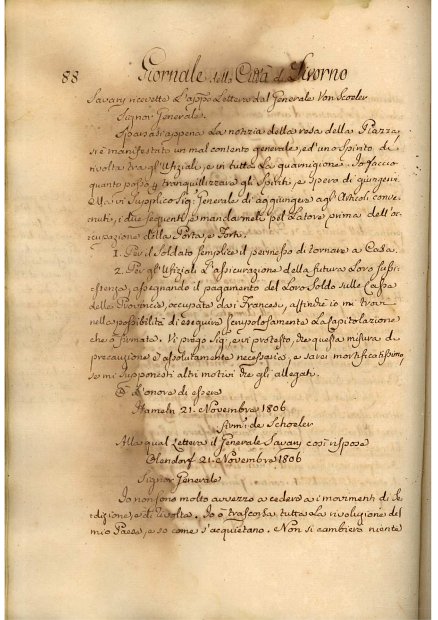 88 Giornale della Città di Livorno
Savary ricevette L'appo Lettera dal Generale Von Scoeler
Signor Generale.
Sparasi appena La notizia della resa della Piazza,
si è manifestato un mal contento generale, ed un spirito di
rivolta tra gl'Ufiziali, e in tutta La guarnigione. Io faccio
quanto posso p tranquillizzare gli Spiriti, e spero di giungervi
Ma vi supplico Sigr Generale di aggiungere agl'Articoli conve
nuti, i due seguenti e mandarmele pel Latore prima dell'oc
cupazione della Porta, e Forte.
1. Per il Soldato semplice il permesso di tornare a Casa.
2. Per gl'Ufiziali L'assicurazione della futura Loro sussi
stenza, assegnando il pagamento del Loro Soldo sulle Casse
delle Provincie, occupate dai Francesi, affinche io mi trovi
nella possibilità di eseguire scrupolosamente La Capitolazione
che ò firmata. Vi prego Sigr e vi protesto, che questa misura di
precauzione è assolutamente necessaria, e sarei mortificatissimo,
se mi supponesti altri motivi che gli allegati.
L'onore di essere
Hameln 21. Novembre 1806
Firm: de Schoeler
Alla qual Lettera il Generale Savary così rispose
Olendorf 21. Novembre 1806
Signor Generale
Io non sono molto avvezzo a cedere a i movimenti di Se
dizione, e di rivolta. Io ò trascorsa tutta La rivoluzione del
mio Paese, e so come s'acquietano. Non si cambierà niente